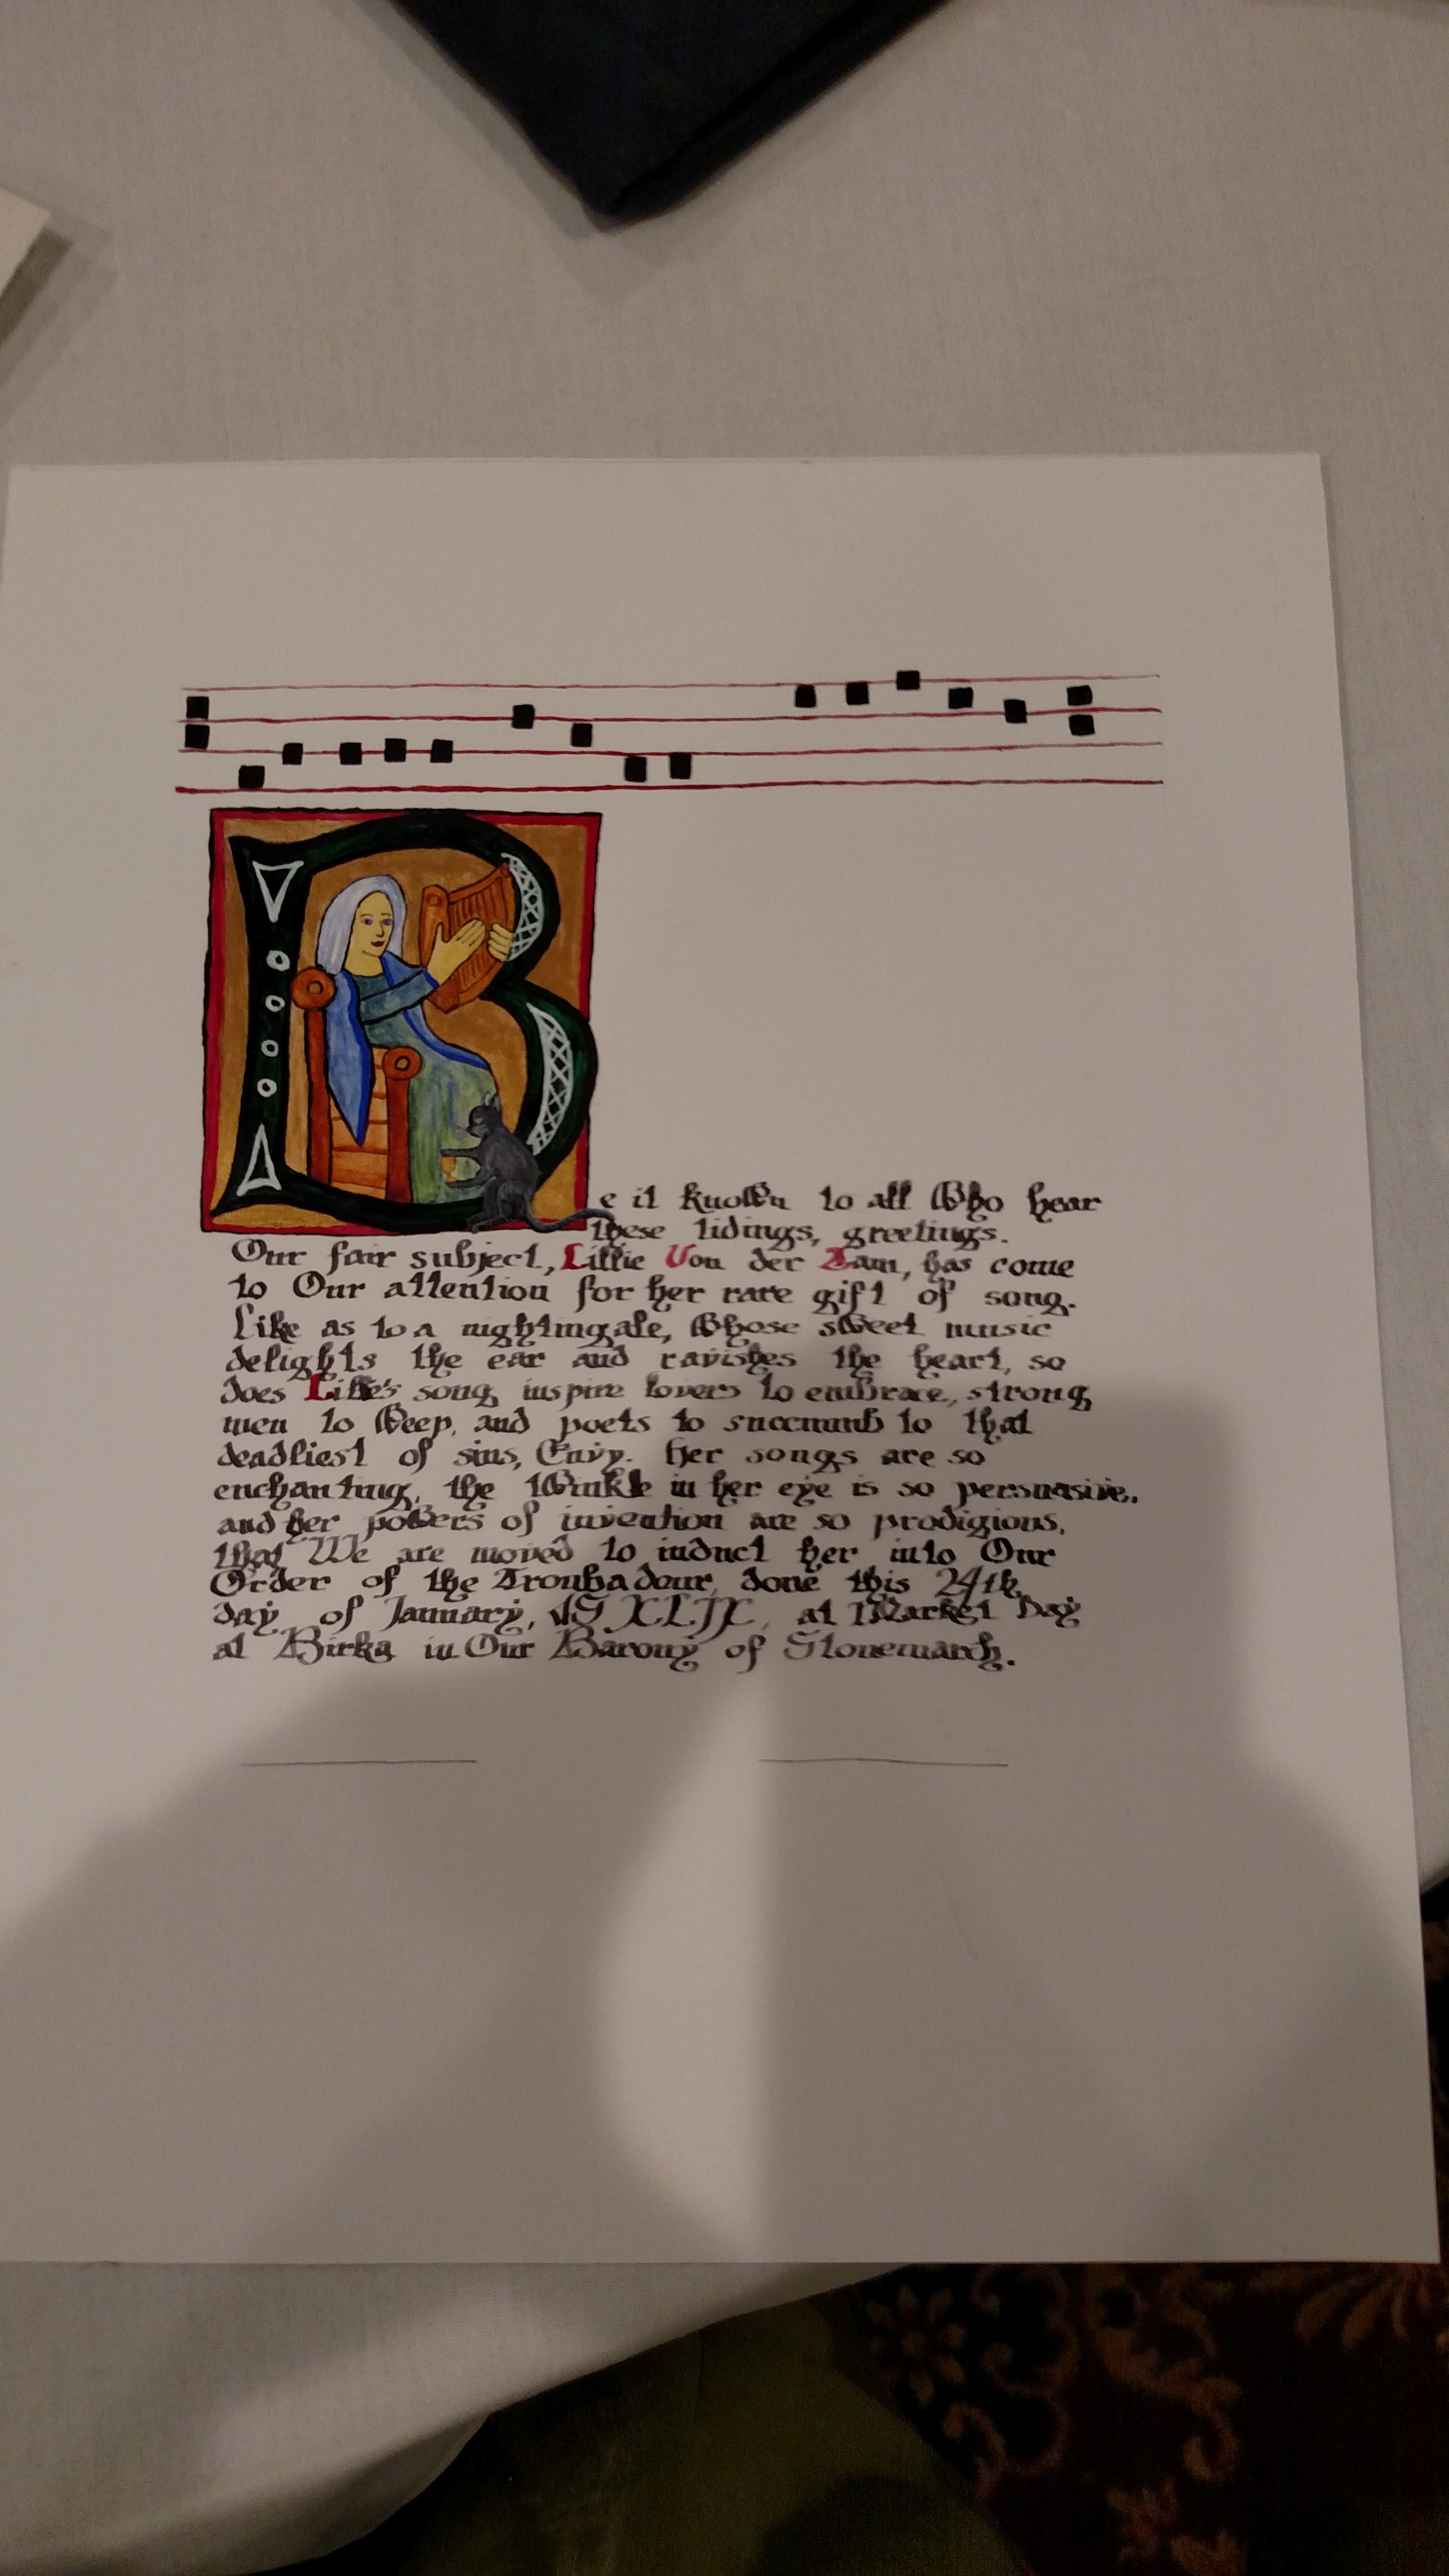 Be it known to all Who hear
these tidings, greetings.
Our fair subject, Lillie Von der Tam, has come
to Our attention for her rare gift of song.
Like as to a nightingale, whose sweet music
delights the ear and ravishes the heart, so
does Lillie's song inspire lovers to embrace, strong
men to Weep, and poets to succumb to that
deadliest of sins, Envy. Her songs are so
enchanting, the twinkle in her eye is so persuasive,
and her powers of invention are so prodigious,
that We are moved to induct her into Our
Order of the Troubadour, done this 24th
day of January, AS XLIX, at Market Day
at Birka in Our Barony of Stonemarch.